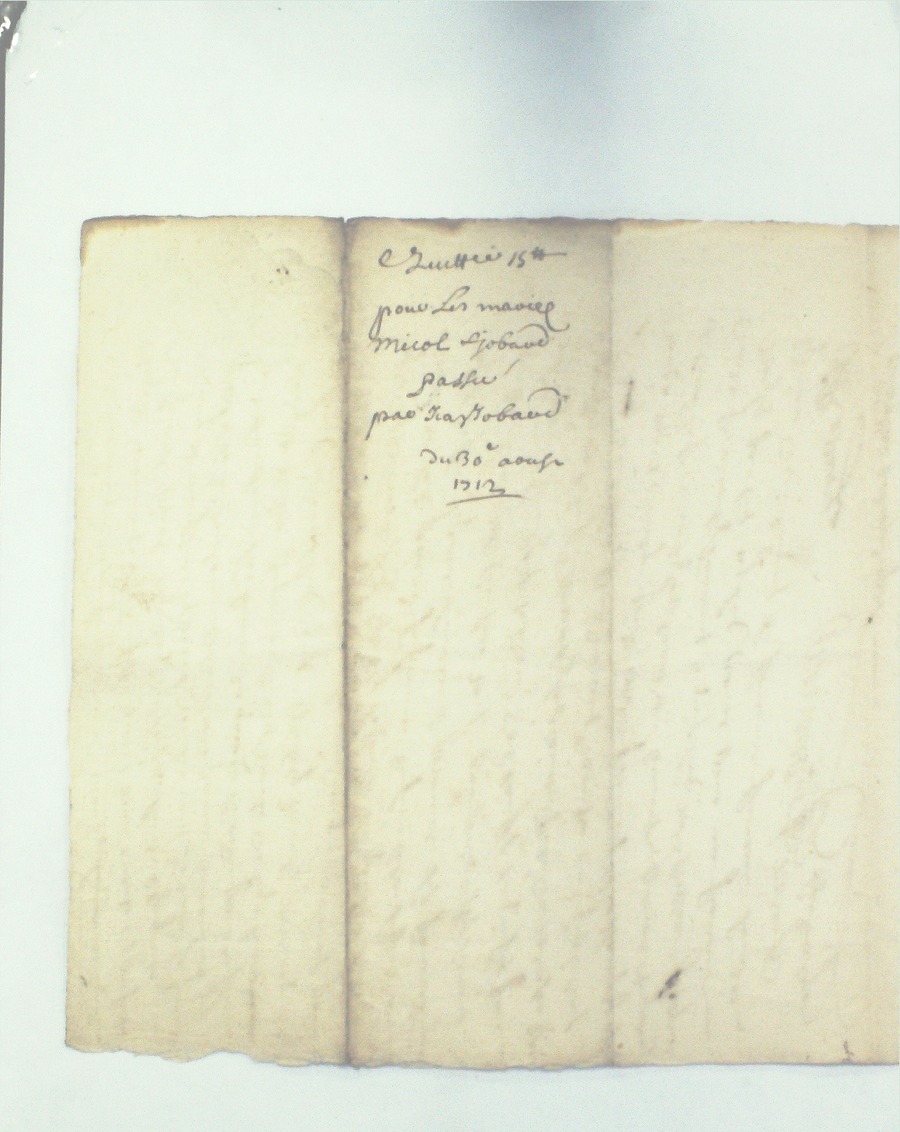 Quittce 15tt
pour Les mariez
micol & jobard
passee
par Jobard
du 30e aoust
1712